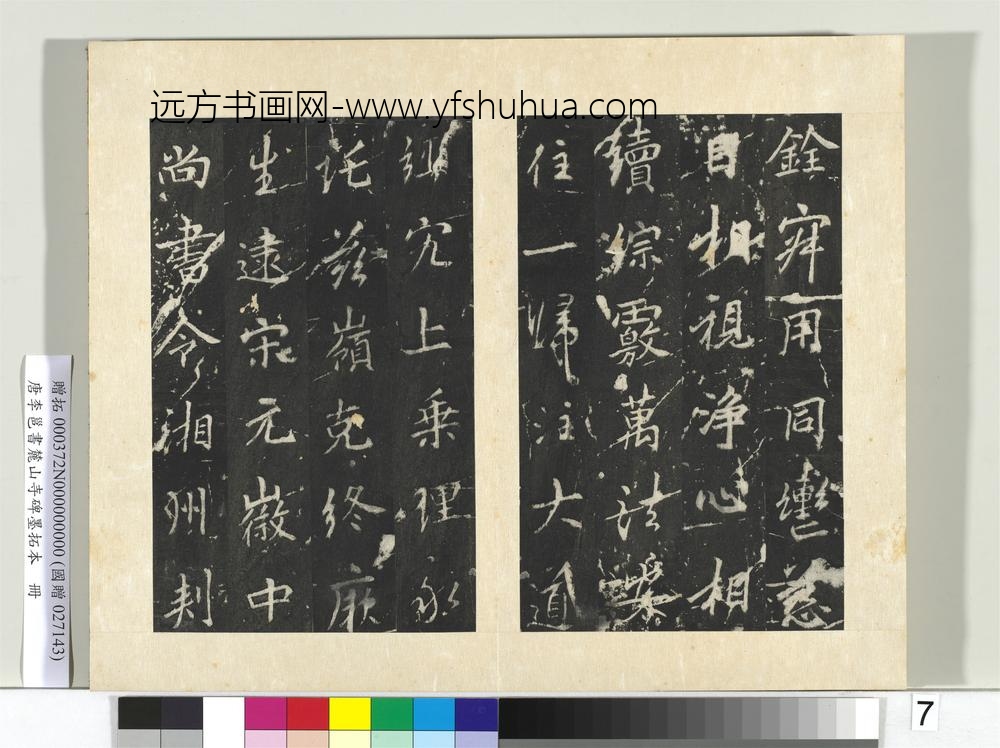 远方书画网-www.yfshuhua.com
銓寂用同轡慈
目相視淨心相
續綜覈萬法藥
住一歸注大道
迥究上乘理永
託茲嶺克終厥
生逮宋元徽中
尚書令湘州刺
贈拓 000372N000000000 (國贈 027143)
唐李邕書麓山寺碑墨拓本 冊
7